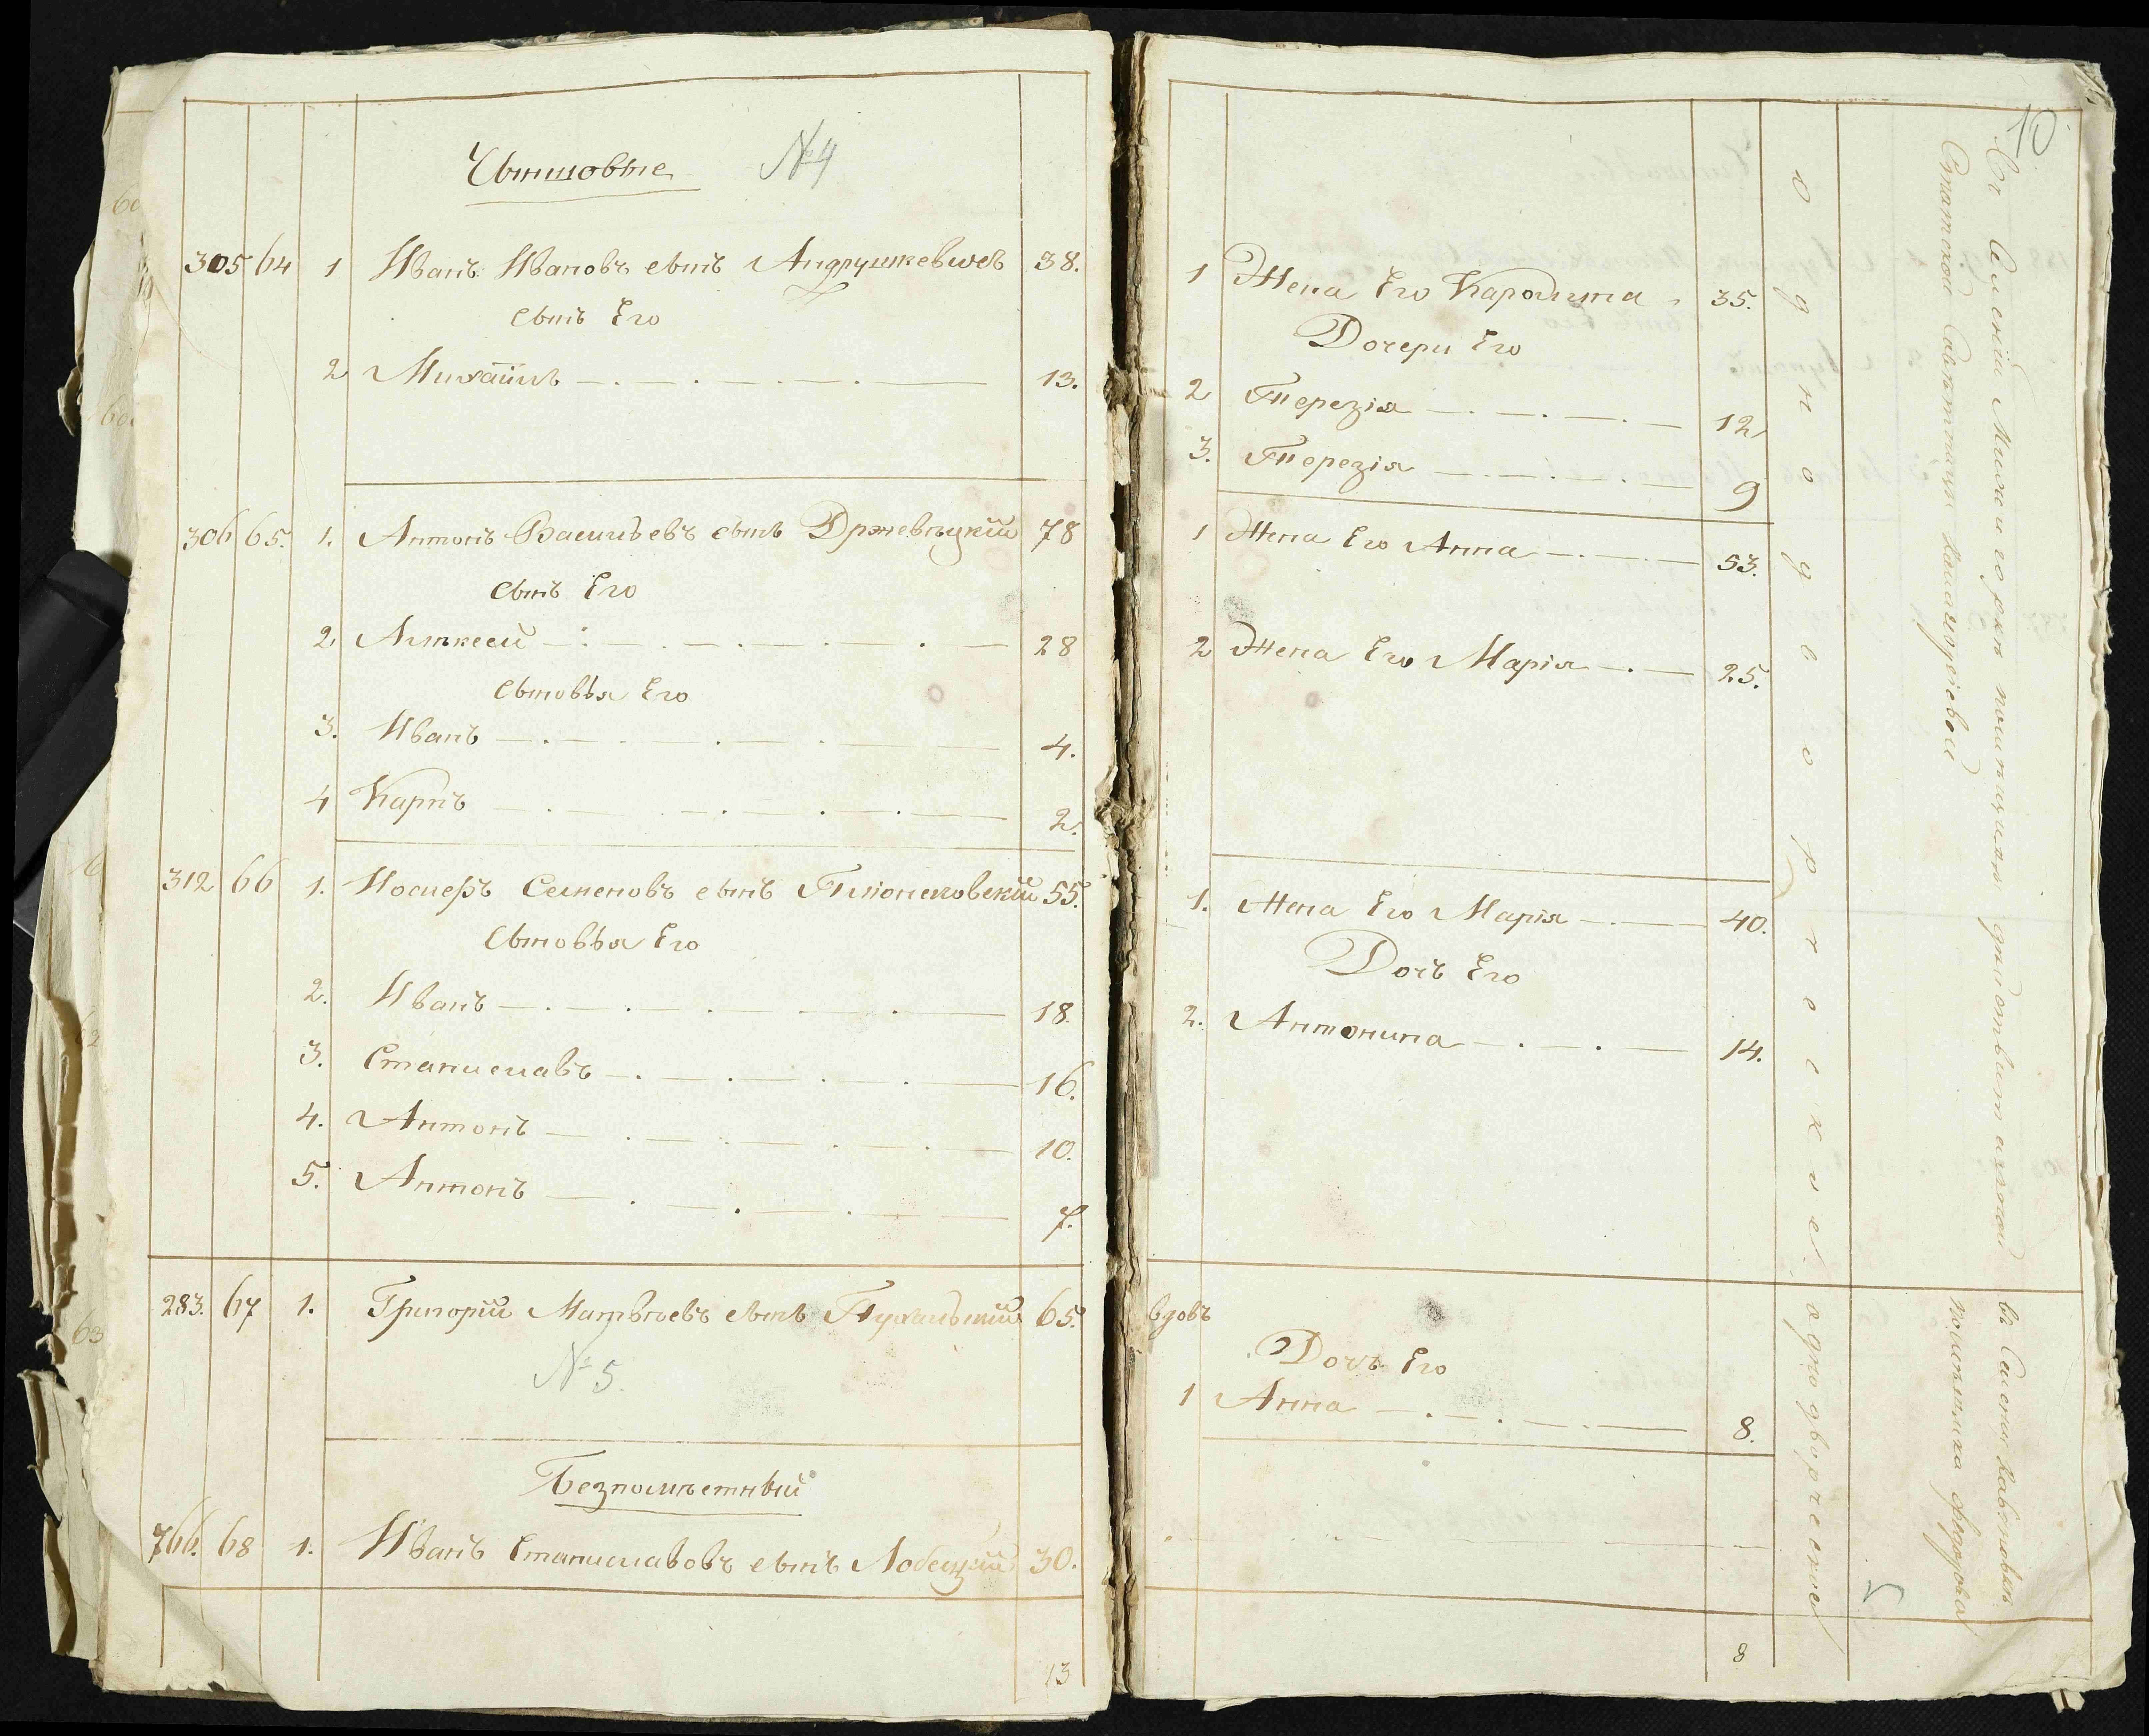 Чыншовые № 4
305 64 1 Иванъ Ивановъ сынъ Андрушкевичъ 38.
сынъ Его
2 Михаилъ 13.
306 65. 1. Антонъ Васильевъ сынъ Држевѣцкій 78
сынъ Его
2 Алѣксей 28
сыновья Его
3. Иванъ 4.
4 Карпъ 2.
312 66 1. Иосифъ Семеновъ сынъ 55.
сыновья Его
2. Иванъ 18.
3. Станиславъ 16.
4. Антонъ 10.
5. Антонъ 7.
283. 67 1. Григорій Матвѣевъ сынъ 65.
№ 5.
Безпомѣстный
766. 68 1. Иванъ Станиславовъ сынъ Лобецкій 30.
13
10
1 Жена Его Каролина 35.
Дочери Его
2 Терезія 12
3. Терезія 9
1 Жена Его Анна 53.
2 Жена Его Марія 25.
1. Жена Его Марія 40.
Дочь Его
2. Антонина 14.
вдовъ
Дочь Его
1 Анна 8.
8
однодворческие
однодворческие
Въ помѣщицы
Статской
въ
помѣщика